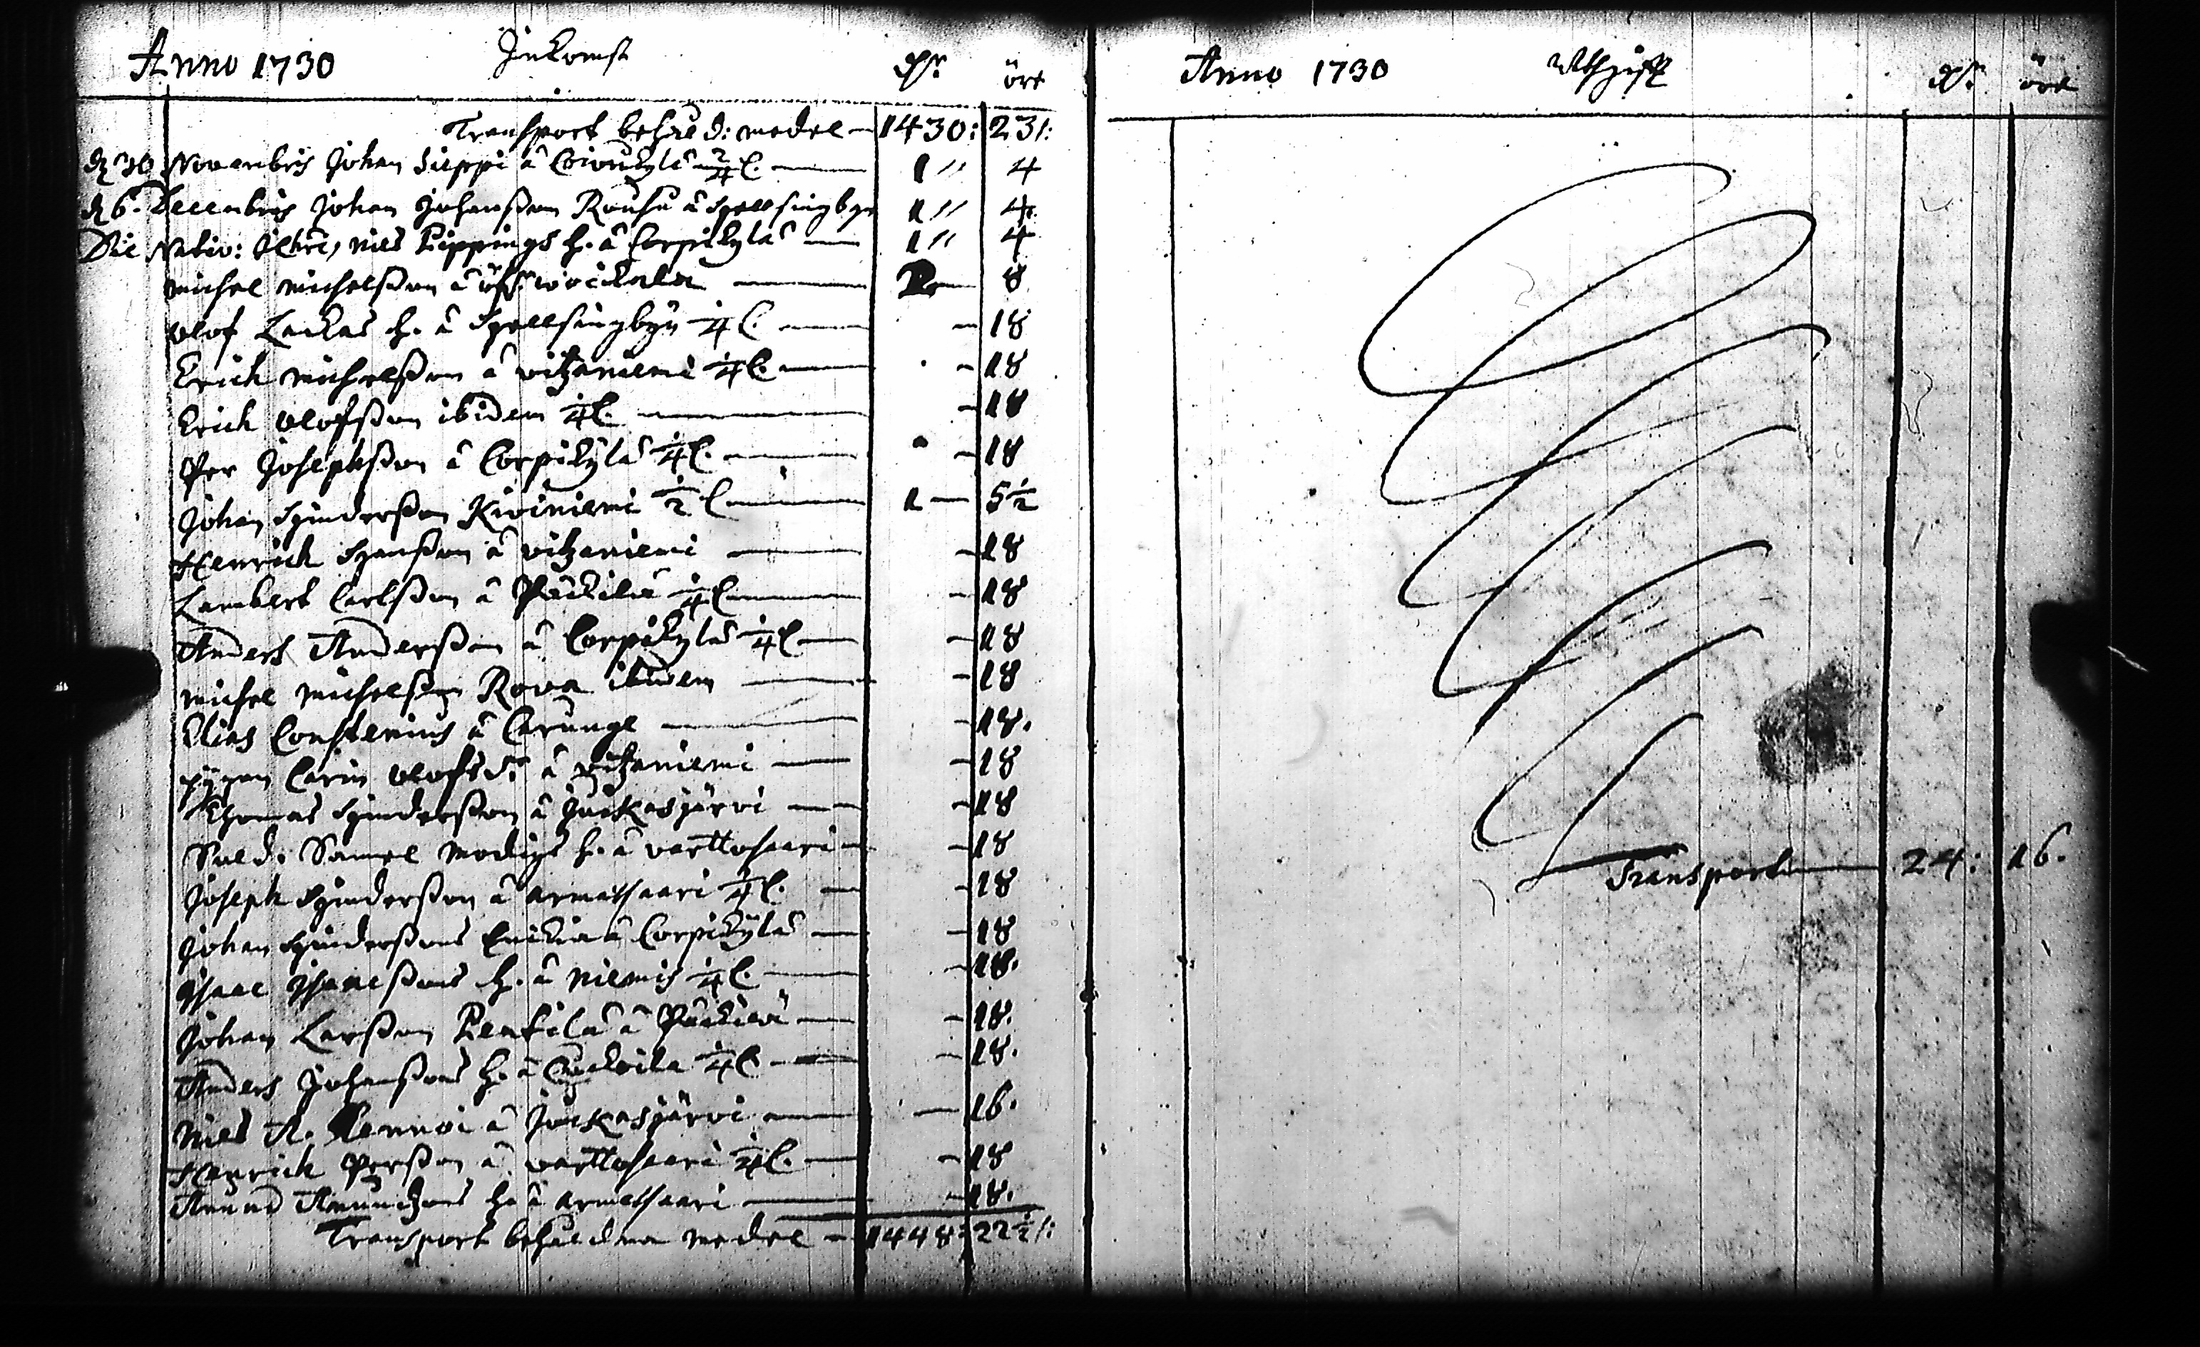 Anno 1730 Inkomst dlr öre
Transport behåld: medel 1430: 23/:
d 30 Novembris Johan Sieppi â Coivukylâ 2/4 l. 1 " 4
d 6. Decembris Johan Johanßon Rousu â Hellsingbyn 1 " 4
Die Nativ: Chri, Nils Pippings h. â Corpikylâ 1 " 4
Michel Michelßon â öfr woickala 2 8
Olof Lackas h. â Hellsingbyn 1/4 l. – 18
Erich Michelßon â vitzaniemi 1/4 l. – 18
Erich Olofßon ibidem 1/4 l. – 18
Per Josephßon â Corpikylâ 1/4 l. – 18
Johan Hinderßon Kiviniemi 1/2 l. 1 – 5 1/2
Henrich Hanßon â vitzaniemi – 18
Lambert Carlßon â Päckilä 1/4 l. – 18
Anders Anderßon â Corpikylâ 1/4 l. – 18
Michel Michelßon Rova ibidem – 18
Elias Constenius â Carungi – 18.
pigan Carin Olofsdr â vitzaniemi – 18
Thomas Hinderßon â Juckasjärvi – 18
Sald: Samel Modigs h. â varttosaari – 18
Joseph Hinderßon â armassaari 1/4 l. – 18
Johan Hinderßons Enckia â Corpikylâ – 18
Isaac Isaacßons h. â Niemis 1/4 l. – 18.
Johan Larßon Pentilä â Päckilä – 18.
Anders Johanßons h. â 1/4 l. – 18.
Nils A. â Juckasjärvi – 16.
Henrich Perßon â varttosaari 1/4 l. – 18
Amund Amundßons h. â armassaari – 18.
Transport behåldna medel – 1448: 22 1/2/:
Anno 1730 Uthgift dlr öre
Transport 24: 16.